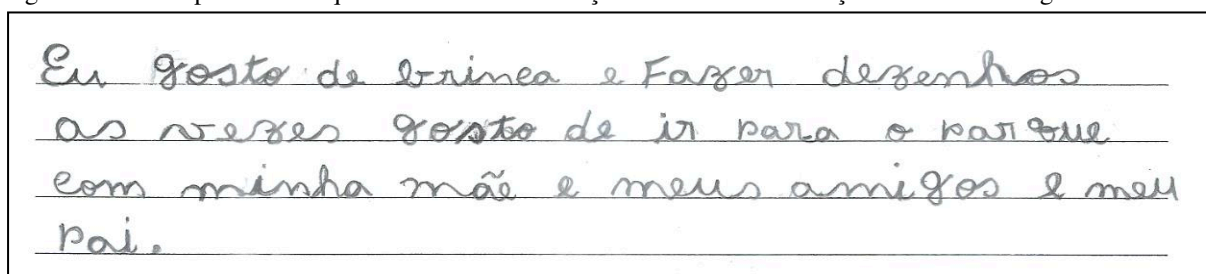 Eu gosto de brinca e Fazer dezenhos
as vezes gosto de ir para o parque
com minha mãe e meus amigos e meu
pai.